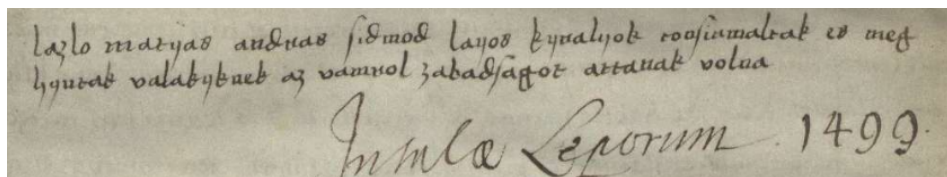 lazlo matyas andras sidmod layos kyralyok consirmaltak es meg
hyutak valakyknek az vamrol zabadsagot attanak volna
Insulæ Leporum. 1499.